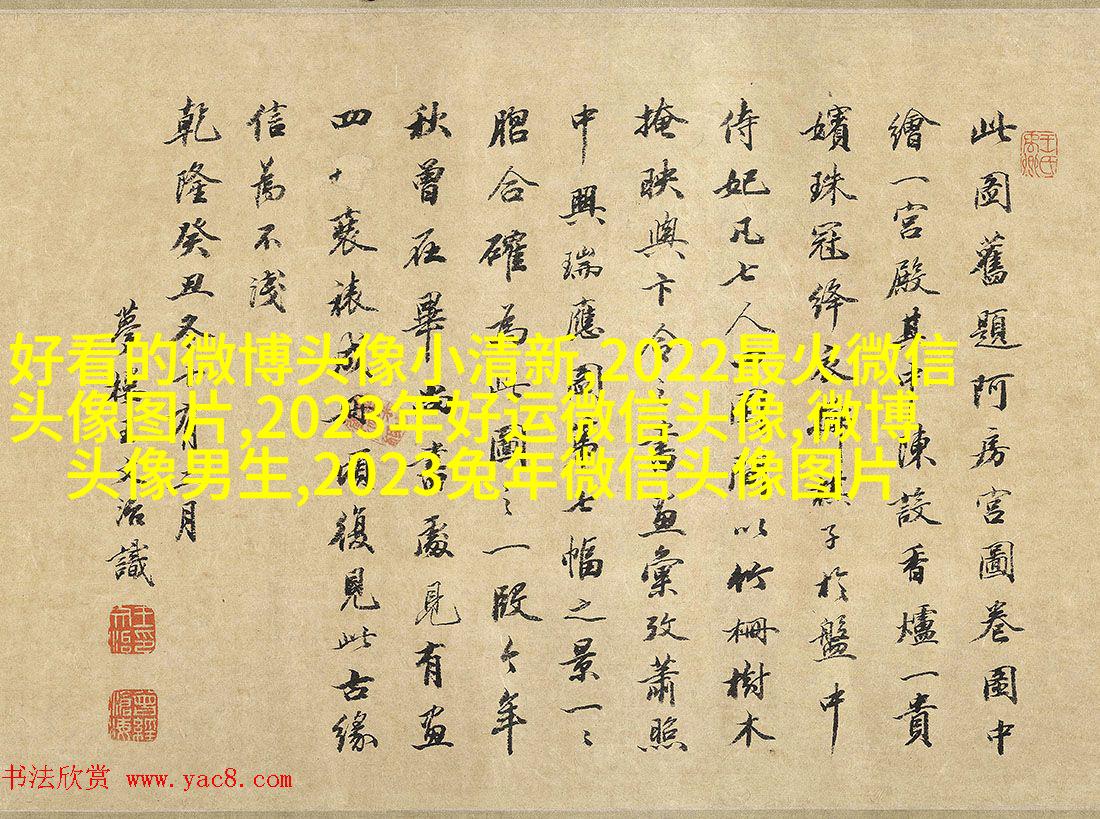 此圖舊題阿房宮圖卷圖中
繪一宮殿其中陳設香爐一貴
嬪珠冠絳衣擲子於盤中
侍妃凡七人以竹柵樹木
掩映與卞令之書畫彙攷蕭照
中興瑞應圖第七幅之景一〻
脗合確為此圖之一段今年
秋曾在畢書處見有畫
四裝裱成冊頃復見此古緣
信為不淺
乾隆癸丑冬十有二月
夢樓王文治識
好看的微博头像小清新,2022最火微信
头像图片,2023年好运微信头像,微博
头像男生,2023兔年微信头像图片
书法欣赏 www.yac8.com